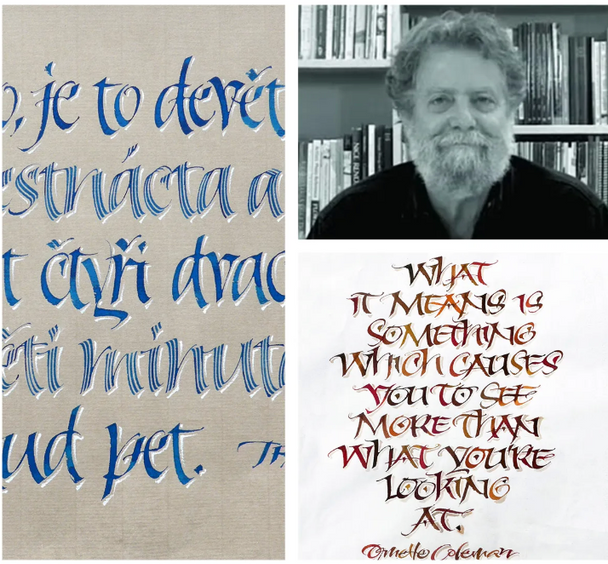 o, je to devět
estnácta a
t čtyři dvac
ěti minut
ud pet. TH
WHAT
IT MEANS IS
SOMETHING
WHICH CAUSES
YOU TO SEE
MORE THAN
WHAT YOU'RE
LOOKING
AT.
Ornette Coleman